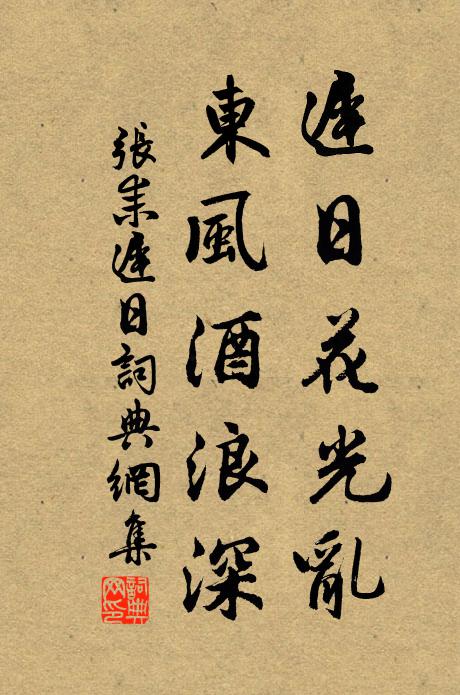 遲日花光亂
東風酒浪深
張耒遲日詞典網集
詞典網印